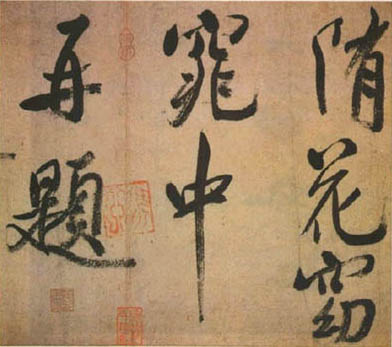 隨花窈
窕中
再題